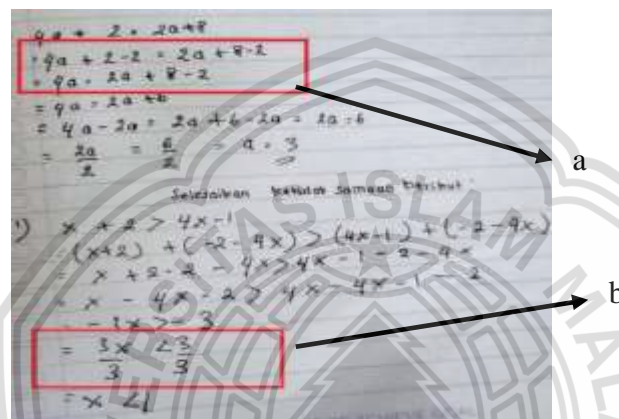 4a + 2 = 2a + 8
= 4a + 2 - 2 = 2a + 8 - 2
= 4a = 2a + 8 - 2
= 4a = 2a + 6
= 4a - 2a = 2a + 6 - 2a = 2a = 6
= 2a/2 = 6/2 = a = 3
a
Selesaikan samaan berikut
1) x + 2 > 4x - 1
= (x+2) + (-2 - 4x) > (4x-1) + (-2 - 4x)
= x + 2 - 2 - 4x > 4x - 1 - 2 - 4x
= x - 4x - 2 > 4x - 4x - 1 - 2
- 3x > - 3
b
= 3x/3 < 3/3
= x < 1